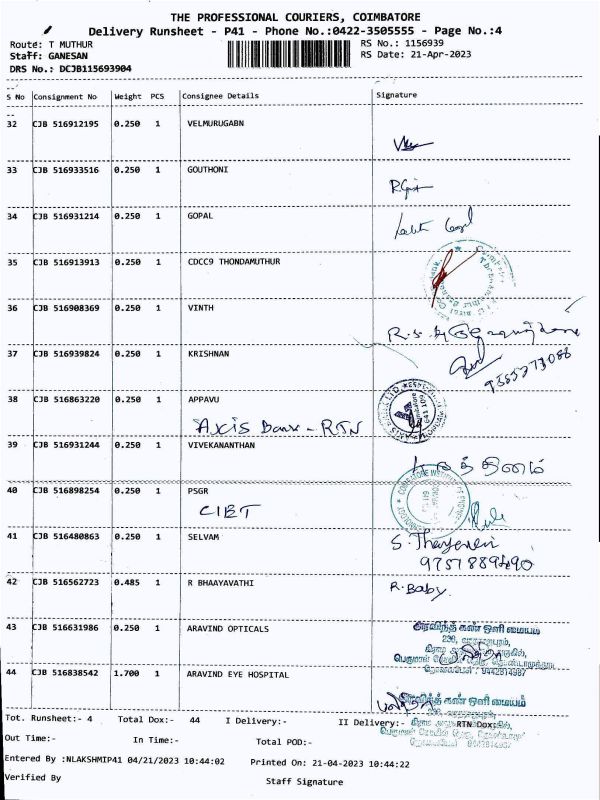 THE PROFESSIONAL COURIERS, COIMBATORE
Delivery Runsheet - P41 - Phone No.:0422-3505555 - Page No.:4
Route: T MUTHUR RS No.: 1156939
Staff: GANESAN RS Date: 21-Apr-2023
DRS No.: DCJB115693904
S No Consignment No Weight PCS Consignee Details Signature
32 CJB 516912195 0.250 1 VELMURUGABN
33 CJB 516933516 0.250 1 GOUTHONI
34 CJB 516931214 0.250 1 GOPAL
35 CJB 516913913 0.250 1 CDCC9 THONDAMUTHUR
36 CJB 516908369 0.250 1 VINTH
37 CJB 516939824 0.250 1 KRISHNAN
38 CJB 516863220 0.250 1 APPAVU
Axis Bank - RTN
39 CJB 516931244 0.250 1 VIVEKANANTHAN
40 CJB 516898254 0.250 1 PSGR
CIET
41 CJB 516480863 0.250 1 SELVAM
42 CJB 516562723 0.485 1 R BHAAYAVATHI
R. Baby.
43 CJB 516631986 0.250 1 ARAVIND OPTICALS
அரவிந்த் கண் ஒளி மையம்
44 CJB 516838542 1.700 1 ARAVIND EYE HOSPITAL
அரவிந்த் கண் ஒளி மையம்
Tot. Runsheet:- 4 Total Dox:- 44 I Delivery:- II Delivery:- RTN Dox:-
Out Time:- In Time:- Total POD:-
Entered By :NLAKSHMIP41 04/21/2023 10:44:02 Printed On: 21-04-2023 10:44:22
Verified By Staff Signature